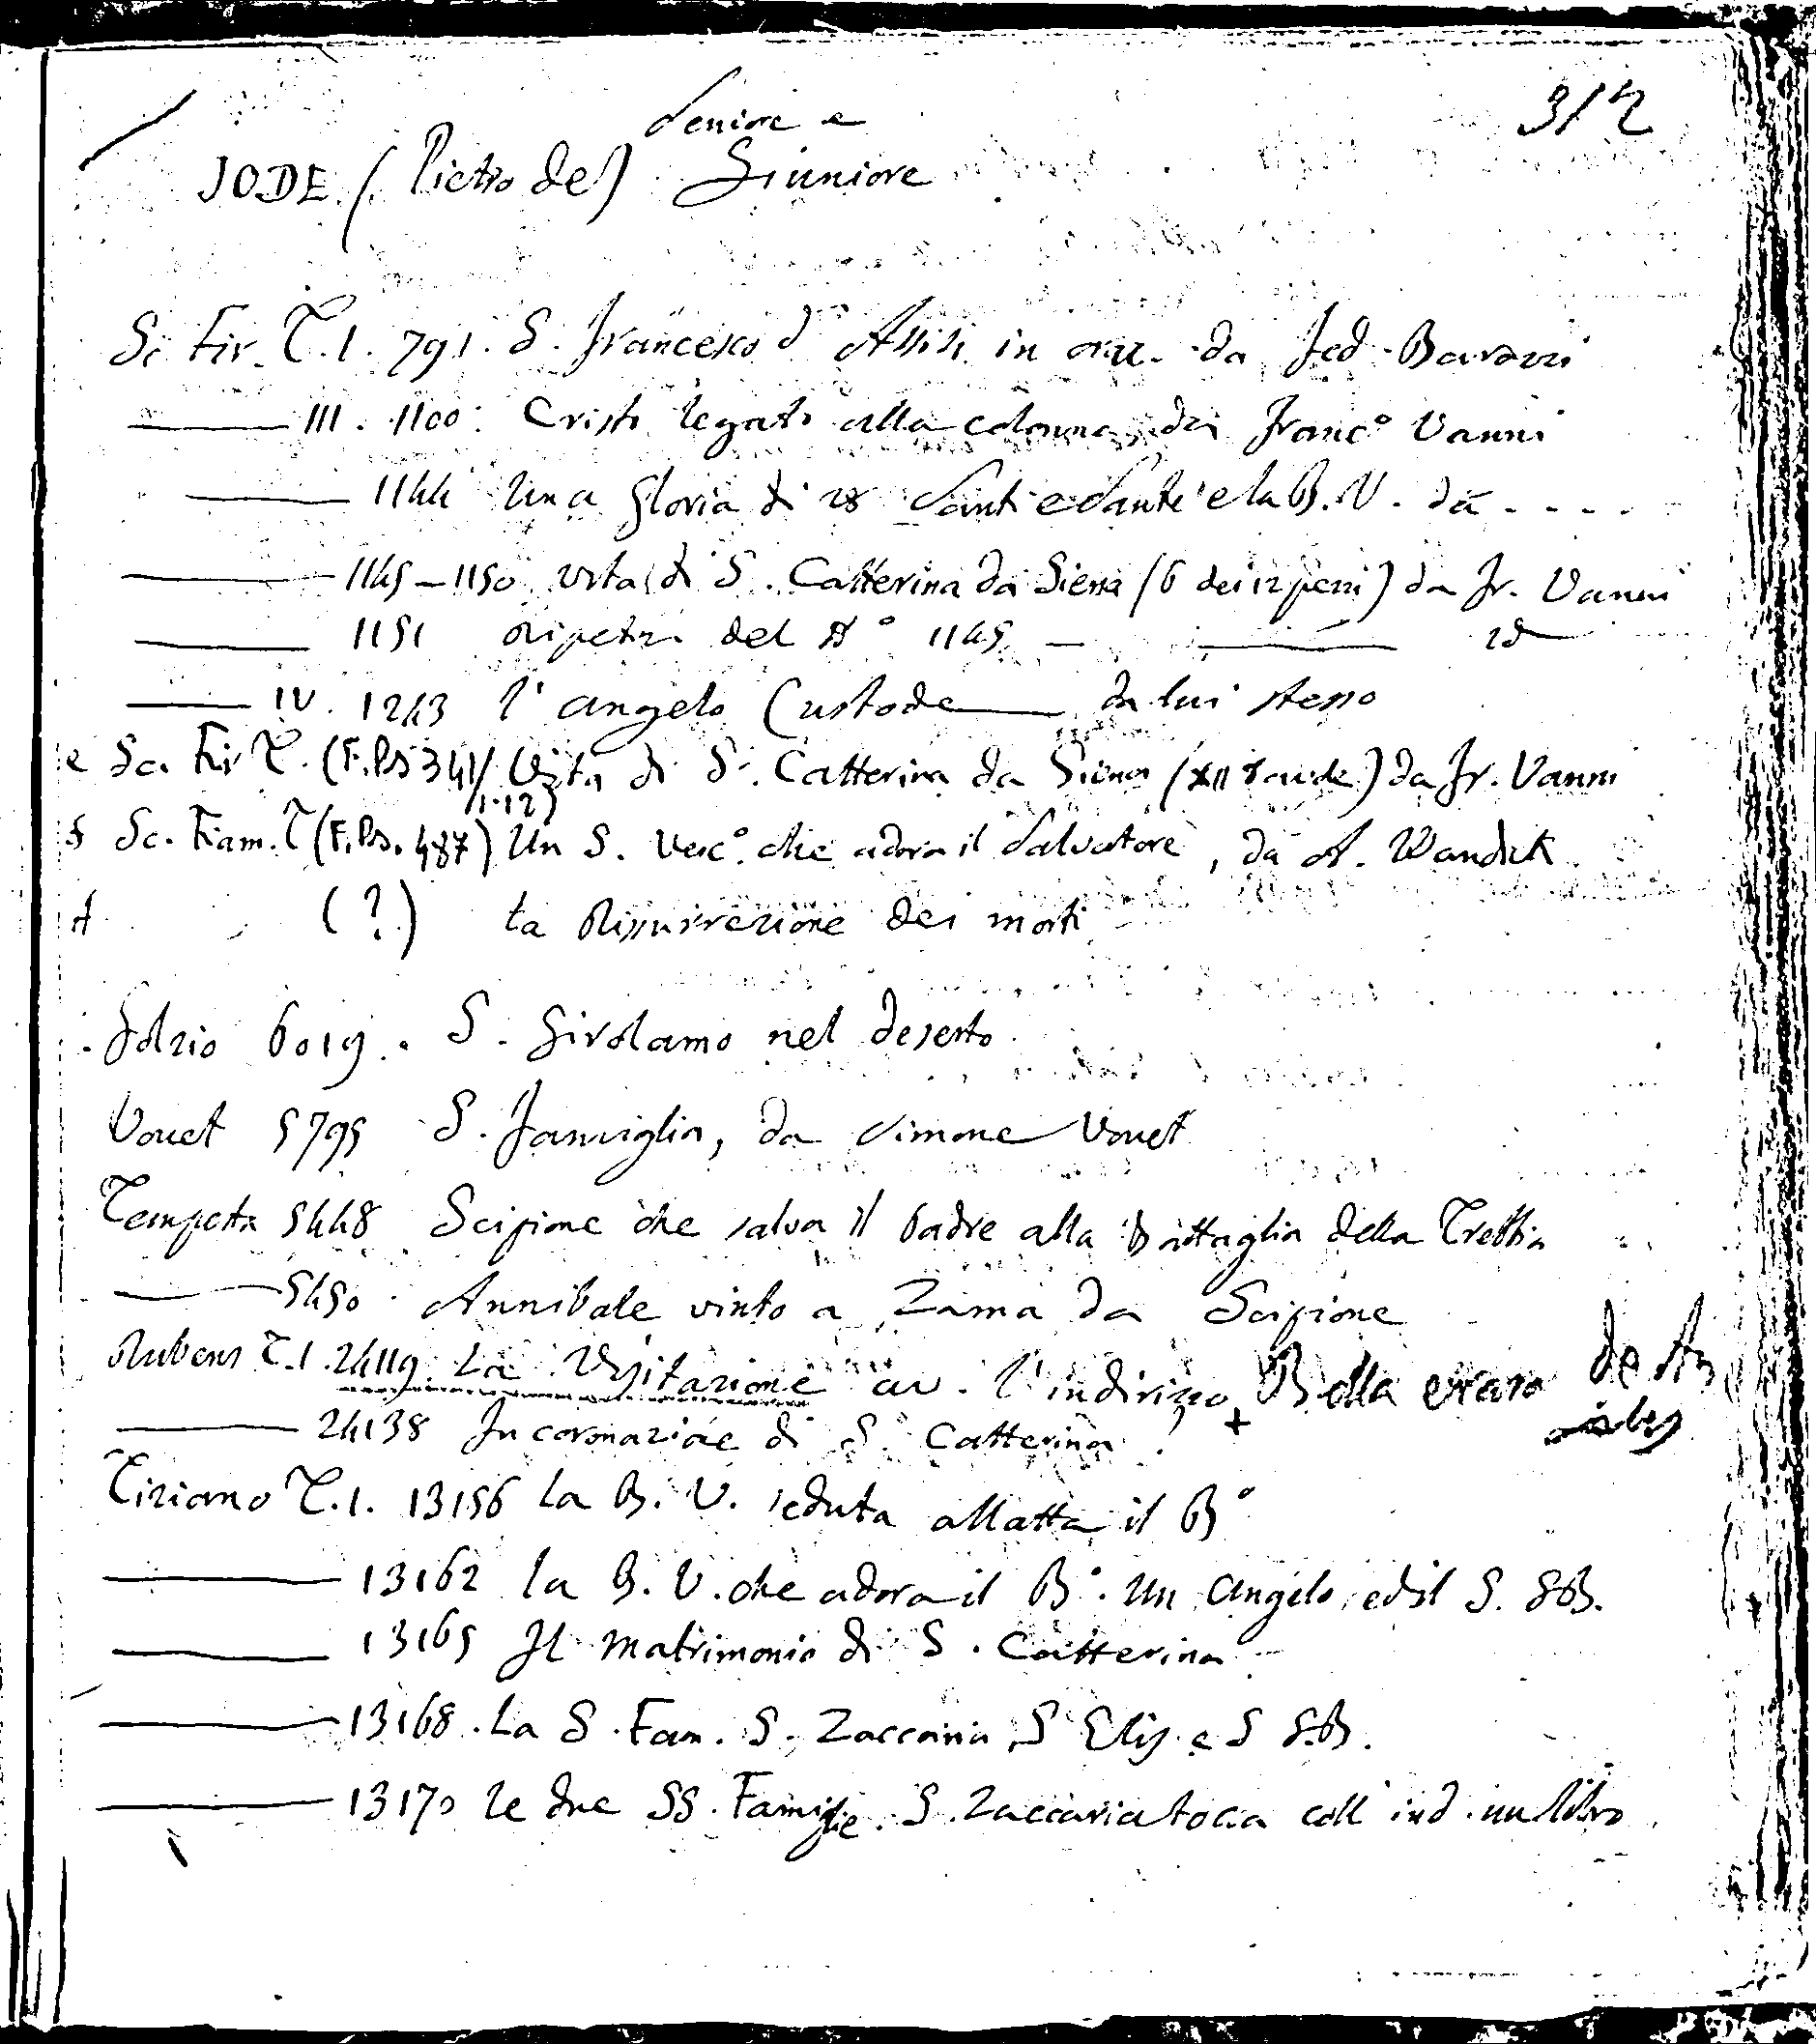 312
Seniore e
JODE (Pietro de) Giuniore
Sc Fir. T. I. 791. S. Francesco d'Assisi in oraz. da Fed. Barozzi
——— III. 1100. Cristo legato alla colonna, da Franc° Vanni
——— 1144 Una gloria di 28 Santi e Sante e la B.V. da - - - -
——— 1145–1150 vita di S. Catterina da Siena (6 dei 12 pezzi) da Fr. Vanni
——— 1151 ripetiz. del N° 1145 — ——— id
——— IV. 1243 l'angelo Custode —— da lui stesso
e Sc. Fir T. (F. BS 341/ Vita di S. Catterina da Siena (XII tavole) da Fr. Vanni
/1-12)
§ Sc. Fiam. T (F. BS. 487) Un S. Vesc°. che adora il Salvatore, da A. Wandick
A (?) La Rissurrezione dei morti
Golzio 6019. S. Girolamo nel deserto
Vouet 5795 S. Famiglia, da Simone Vouet
Tempesta 5448 Scipione che salva il Padre alla Battaglia della Trebbia
——— 5450. Annibale vinto a Zama da Scipione
Rubens T. I. 24119. La Visitazione av. l'indirizzo, Bella e rara de
——— 24138 Incoronazione di S. Catterina +
Tiziano T. I. 13156 La B. V. seduta allatta il B°
——— 13162 la B. V. che adora il B°. Un Angelo, ed il S. GB.
——— 13165 Il Matrimonio di S. Catterina
——— 13168. La S. Fam. S. Zaccaria, S Elis. e S G.B.
——— 13170 le due SS. Famiglie. S. Zaccaria tocca coll ind. un libro